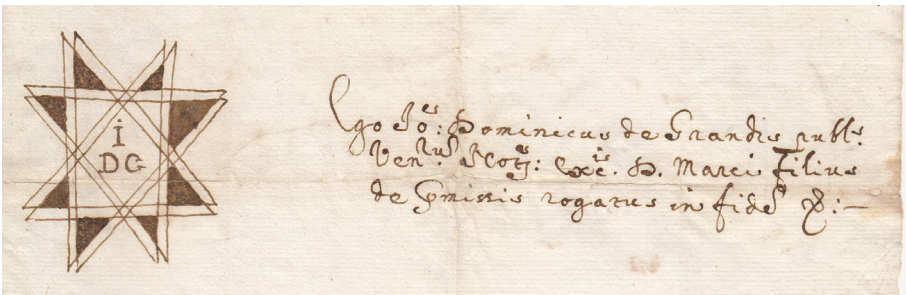 I
DG
Ego Jo:es Dominicus de Grandis publ:s
Ven:tus Not:s: Ex:tis D. Marci Filius
de pmissis rogatus in fide